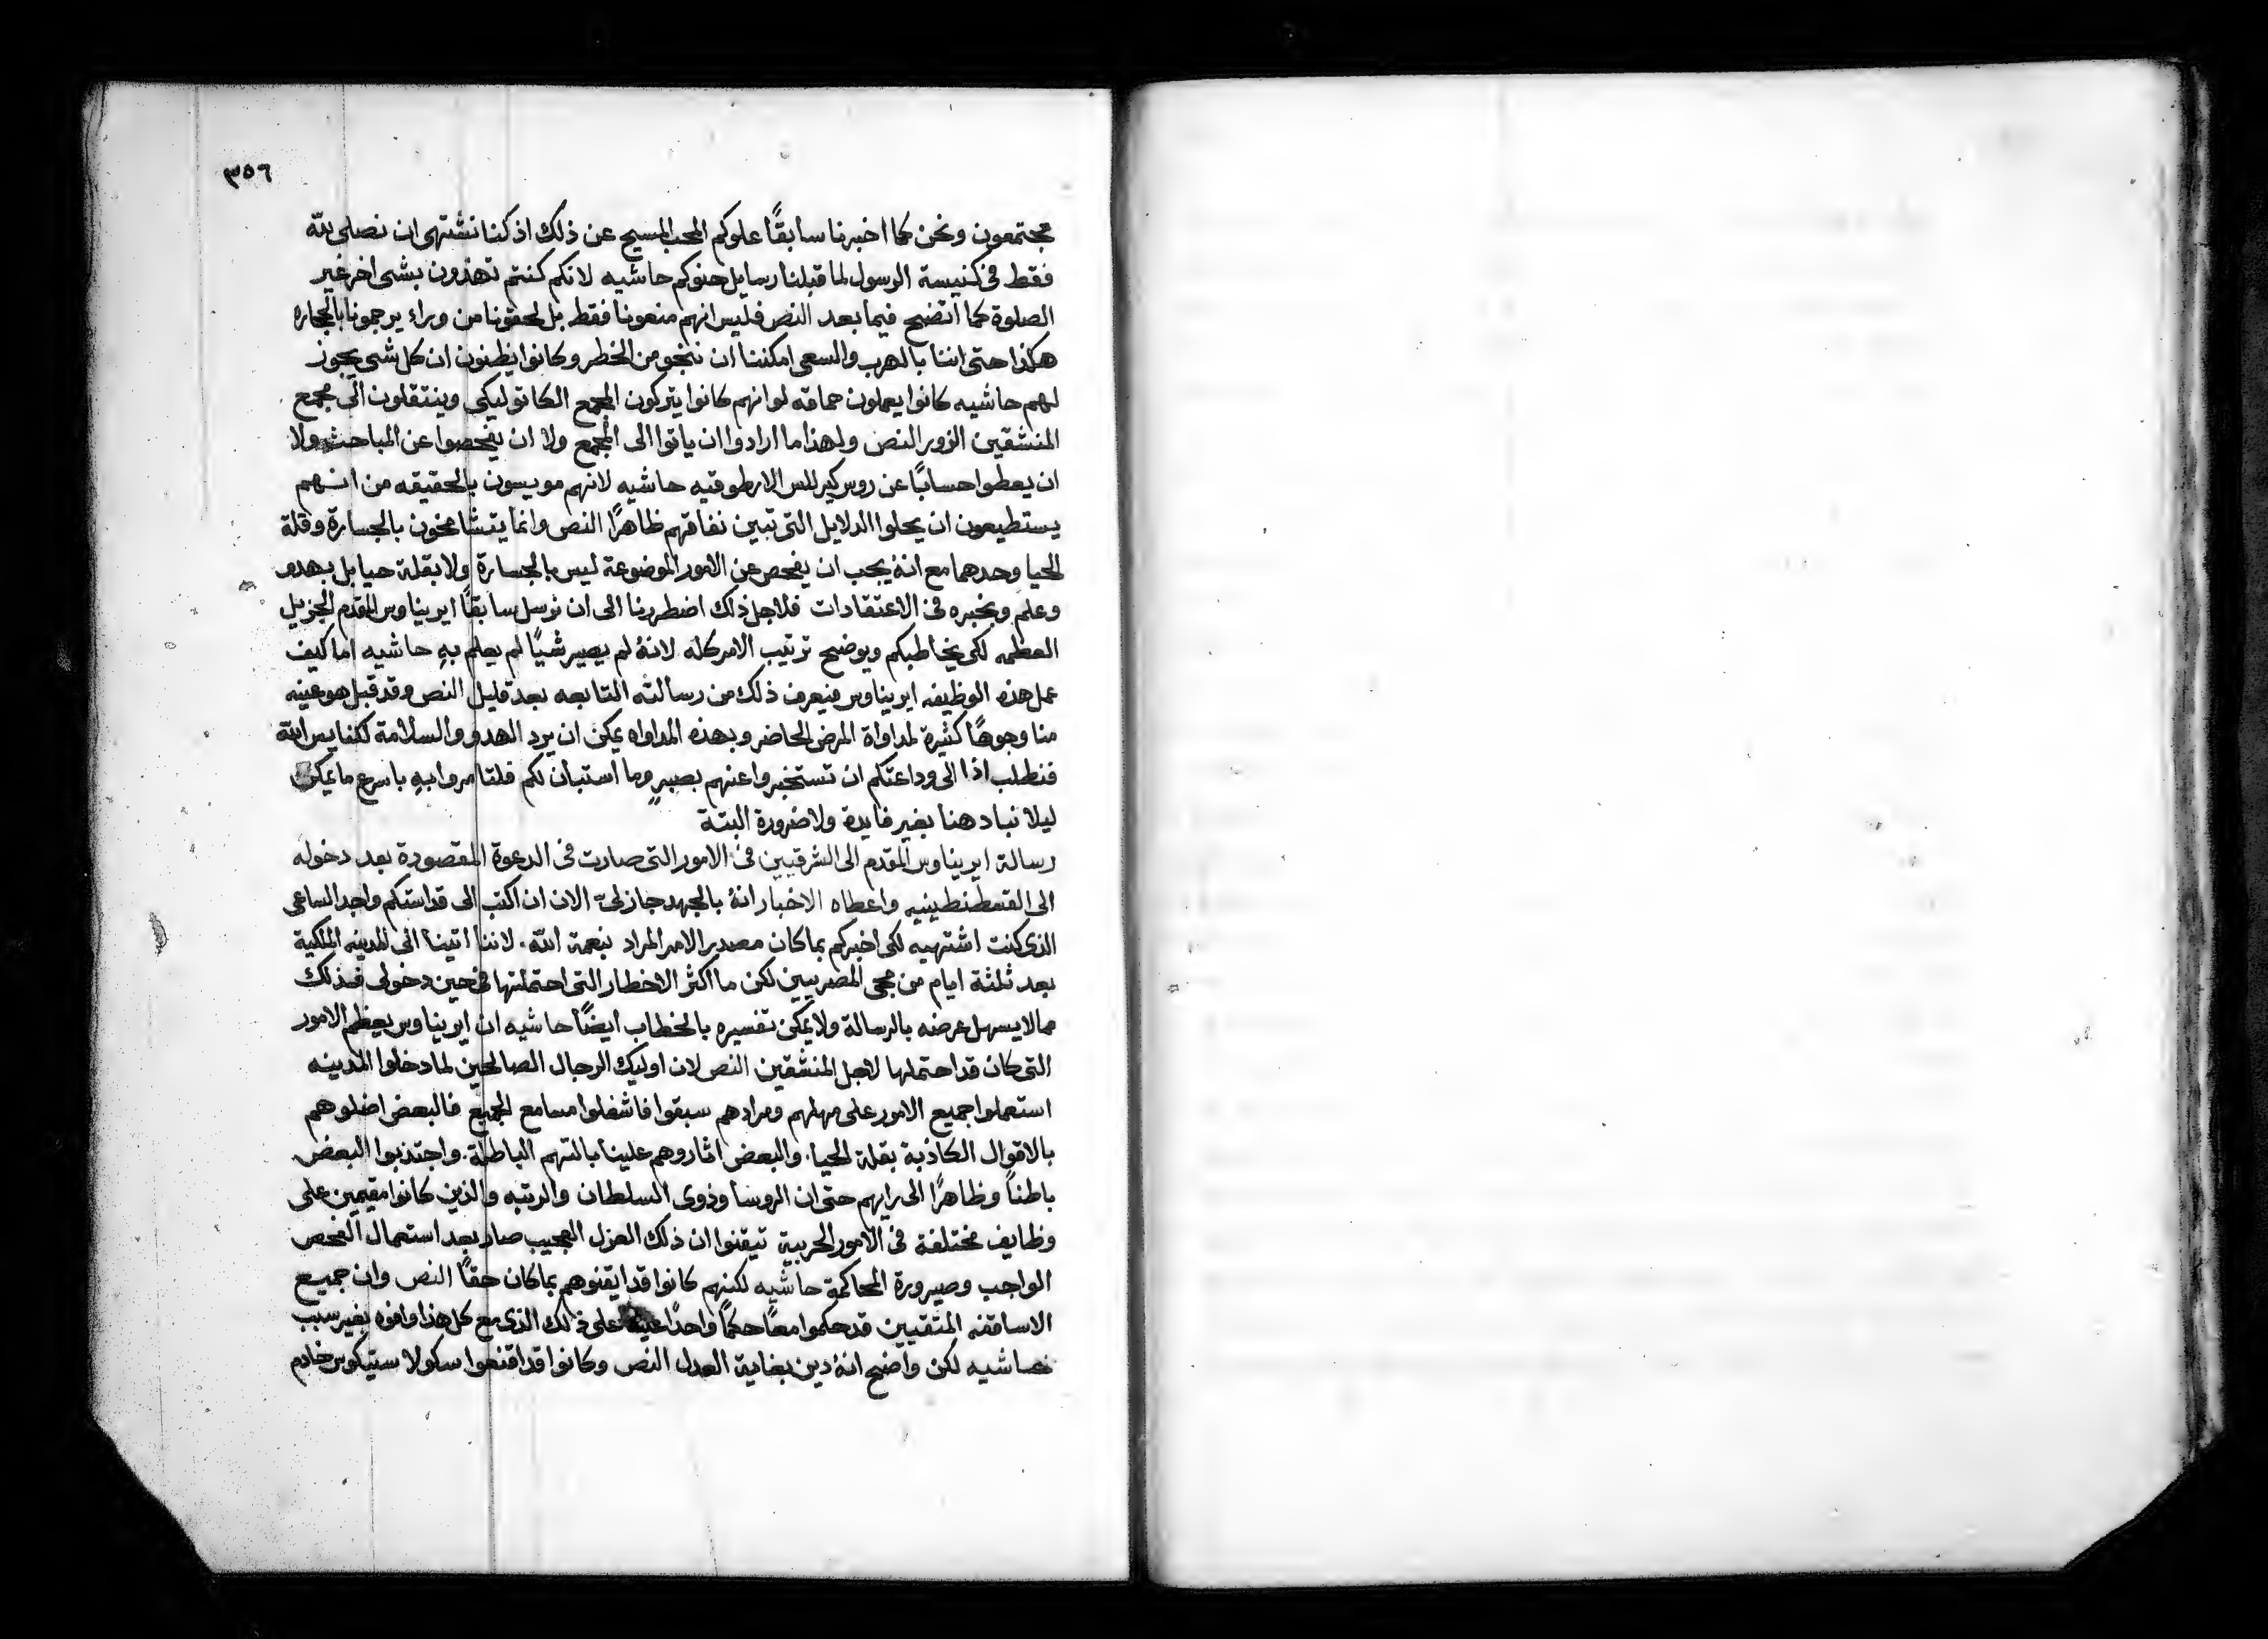 ٣٥٦
مجتمعون ونحن كما اخبرنا سابقًا علوكم المحب المسيح عن ذلك اذ كنا نشتهى ان نصلى لله
فقط فى كنيسة الرسول لما قبلنا رسايل حنوكم حاشيه لانكم كنتم تهذون بشى اخر غير
الصلوة كما اتضح فيما بعد النص فليس انهم منعونا فقط بل لحقونا من وراء يرجمونا بالحجاره
هكذا حتى اننا بالهرب والسعى امكننا ان ننجو من الخطر وكانوا يظنون ان كل شى يجوز
لهم حاشيه كانوا يعملون حماقه لو انهم كانوا يتركون المجمع الكاتوليكى وينتقلون الى مجمع
المنشقين الزور النص ولهذا ما ارادوا ان ياتوا الى المجمع ولا ان يفحصوا عن المباحث ولا
ان يعطوا حسابًا عن روس كيرللس الارطوقيه حاشيه لانهم مويسون بالحقيقه من انهم
يستطيعون ان يحلوا الدلايل التى تبين نفاقهم ظاهرًا النص وانما يتشامخون بالجسارة وقلة
الحيا وحدهما مع انهُ يجب ان يفحص عن الامور الموضوعة ليس بالجسارة ولا بقلة حيا بل بهدو
وعلم وبخبره فى الاعتقادات فلاجل ذلك اضطررنا الى ان نرسل سابقًا ايريناوس المقدم الجزيل
العظمه لكى يخاطبكم ويوضح ترتيب الامر كله لانهُ لم يصير شيًا لم يعلم بهِ حاشيه اما كيف
عمل هذه الوظيفه ايريناوس فنيعرف ذلك من رسالته التابعه بعد قليل النص وقد قبل هو عينه
منا وجوهًا كثيرة لمداواة المرض الحاضر وبهذه المداواه يمكن ان يرد الهدو والسلامة لكنايس الله
فنطلب اذا الى وداعتكم ان تستخبروا عنهم بصبرٍ وما استبان لكم فلتامروا بهِ باسرع ما يمكن
ليلا نباد هنا بغير فايدة ولا ضرورة البتة
رسالة ايريناوس المقدم الى الشرقيين فى الامور التى صارت فى الدعوة المقصودة بعد دخوله
الى القسطنطينيه واعطاه الاخبار انهُ بالجهد جاز لىّ الان ان اكتب الى قداستكم واجد الساعى
الذى كنت اشتهيه لكى اخبركم بما كان مصدر الامر المراد بنعمة الله. لاننا اتينا الى المدينه الملكية
بعد ثلثة ايام من مجى المصريين لكن ما اكثر الاخطار التى احتملتها فى حين دخولى فذلك
مما لا يسهل عرضه بالرسالة ولا يمكن تفسيره بالخطاب ايضًا حاشيه ان ايريناوس يعظم الامور
التى كان قد احتملها لاجل المنشقين النص لان اوليك الرجال الصالحين لما دخلوا المدينه
استعملوا جميع الامور على مهلهم ومرادهم سبقوا فاشغلوا مسامع الجميع فالبعض اضلوهم
بالاقوال الكاذبة بقلة الحيا. والبعض اثاروهم علينا بالتهم الباطلة. واجتذبوا البعض
باطنًا وظاهرًا الى رايهم حتى ان الروسا وذوى السلطان والرتبه والذين كانوا مقيمين على
وظايف مختلفة فى الامور الحربية تيقنوا ان ذلك العزل العجيب صار بعد استعمال الفحص
الواجب وصيرورة المحاكمة حاشيه لكنهم كانوا قد ايقنوهم بما كان حقًا النص وان جميع
الاساقفه المتقيين قد حكموا معًا حكمًا واحدًا عينه على ذلك الذى مع كل هذا وافوه بغير سبب
حاشيه لكن واضح انهُ دين بغاية العدل النص وكانوا قد اقنعوا سكولاستيكوس خادم